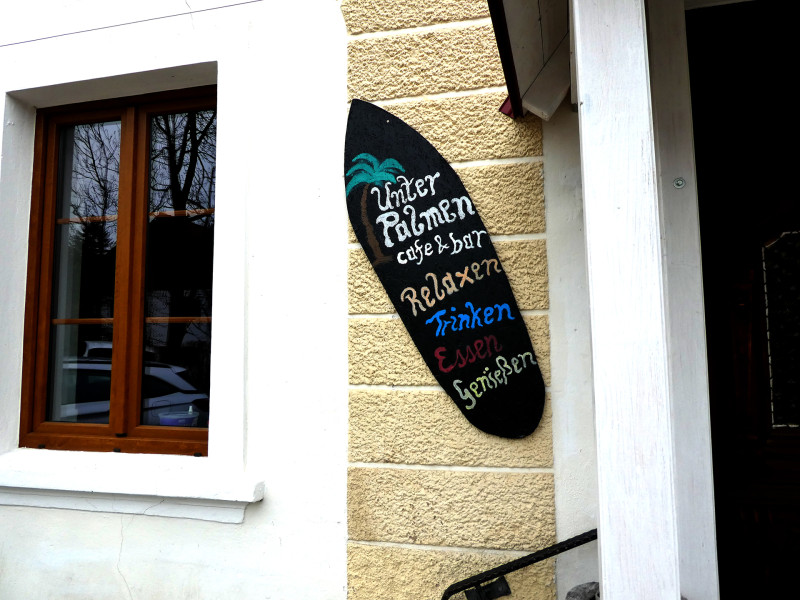 Unter
Palmen
cafe & bar
Relaxen
Trinken
Essen
Genießen